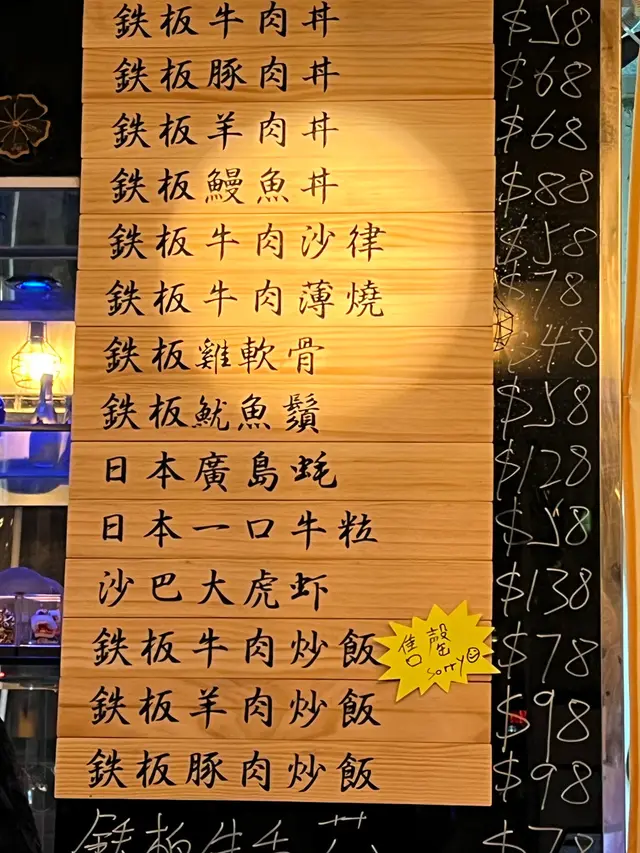 鉄板牛肉丼 $58
鉄板豚肉丼 $68
鉄板羊肉丼 $68
鉄板鰻魚丼 $88
鉄板牛肉沙律 $58
鉄板牛肉薄燒 $78
鉄板雞軟骨 $48
鉄板魷魚鬚 $58
日本廣島蚝 $128
日本一口牛粒 $58
沙巴大虎虾 $138
鉄板牛肉炒飯 $78
售罄
sorry
鉄板羊肉炒飯 $98
鉄板豚肉炒飯 $98
鉄板牛 $78